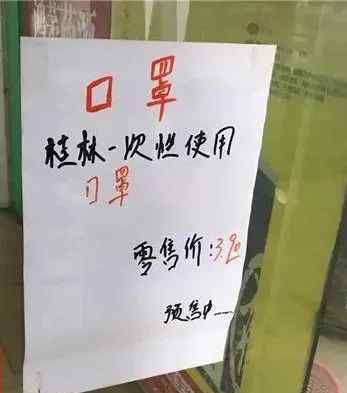 口罩
桂林一次性使用
口罩
零售价:3.90
预售中……